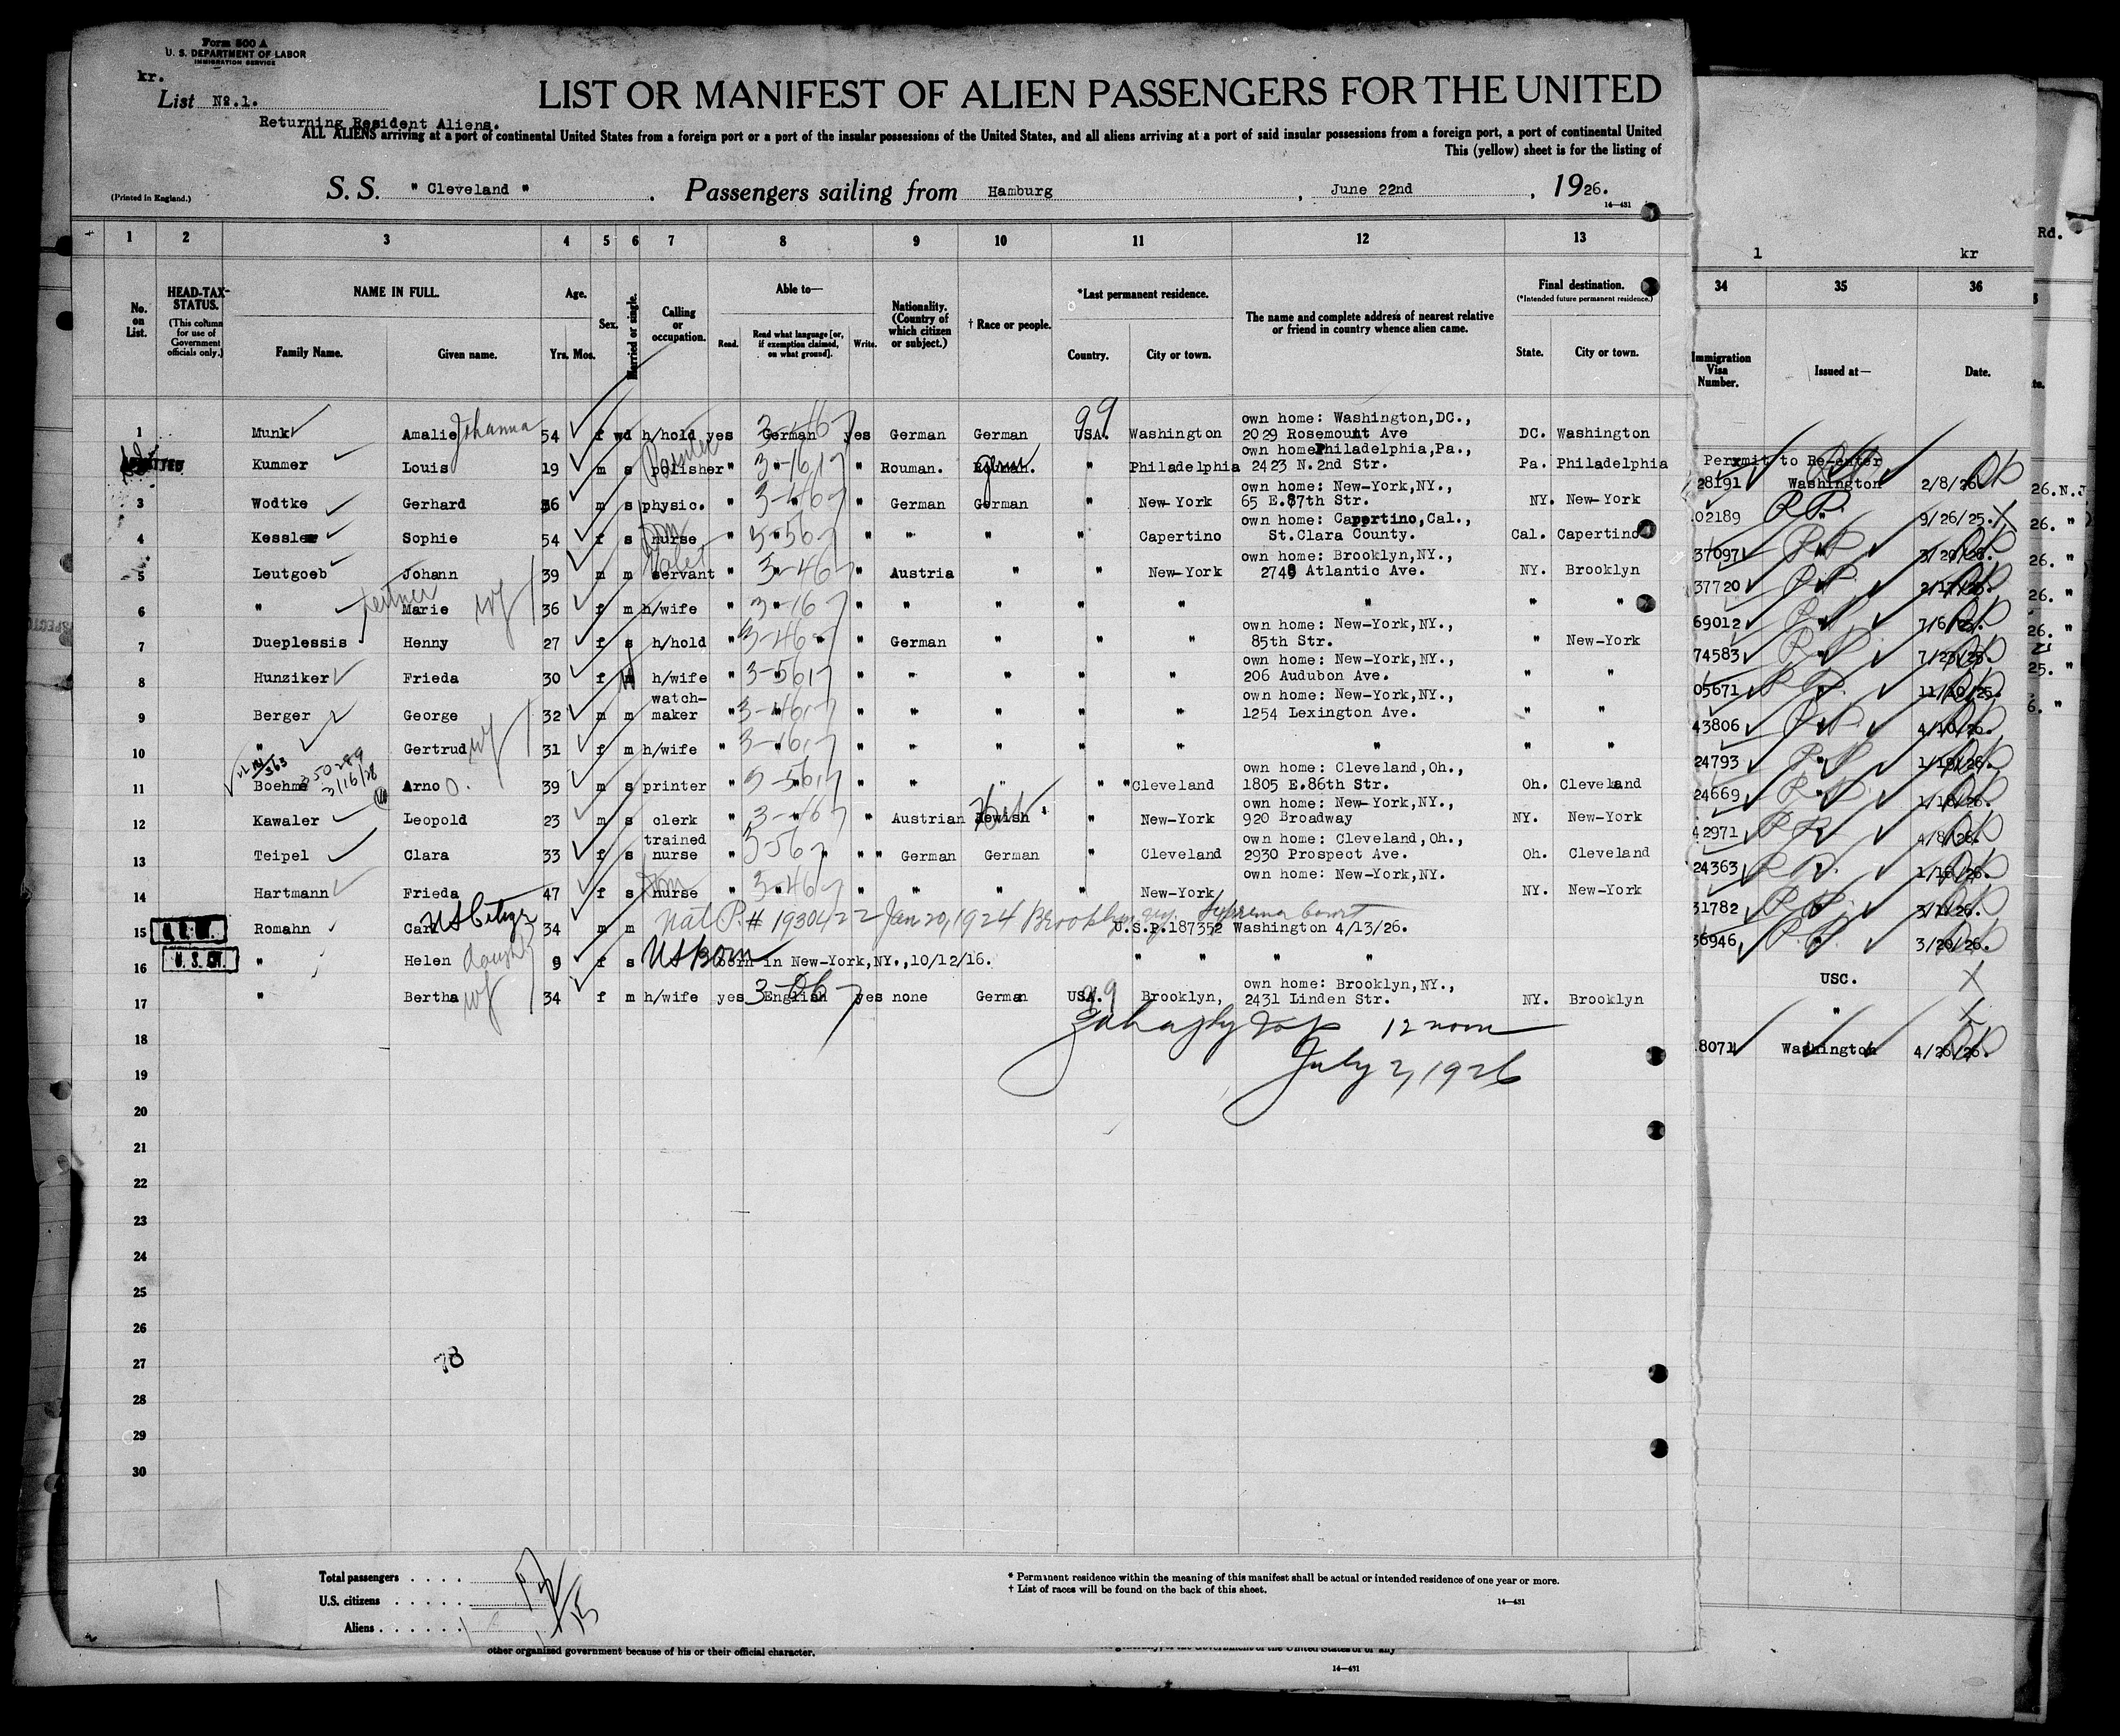 Form 500 A
U. S. DEPARTMENT OF LABOR
IMMIGRATION SERVICE
kr.
List No.1.
LIST OR MANIFEST OF ALIEN PASSENGERS FOR THE UNITED
Returning Resident Aliens.
ALL ALIENS arriving at a port of continental United States from a foreign port or a port of the insular possessions of the United States, and all aliens arriving at a port of said insular possessions from a foreign port, a port of continental United
This (yellow) sheet is for the listing of
(Printed in England.) S. S. " Cleveland " . Passengers sailing from Hamburg , June 22nd , 1926.
14—431
Rd.
1 kr
1 2 3 4 5 6 7 8 9 10 11 12 13 34 35 36
No. on List. HEAD-TAX STATUS. (This column for use of Government officials only.) NAME IN FULL. Family Name. Given name. Age. Yrs. Mos. Sex. Married or single. Calling or occupation. Able to— Read. Read what language [or, if exemption claimed, on what ground]. Write. Nationality. (Country of which citizen or subject.) † Race or people. *Last permanent residence. Country. City or town. The name and complete address of nearest relative or friend in country whence alien came. Final destination. (*Intended future permanent residence.) State. City or town. Immigration Visa Number. Issued at— Date.
own home: Washington,DC.,
1 Munk Amalie Johanna 54 f wd h/hold yes German yes German German USA. Washington 2029 Rosemount Ave DC. Washington
own home Philadelphia,Pa.,
Kummer Louis 19 m s polisher " " " Rouman. Rouman. Germ " Philadelphia 2423 N.2nd Str. Pa. Philadelphia
Permit to Re-enter
28191 Washington 2/8/26
own home: New-York,NY.,
3 Wodtke Gerhard 36 m s physic. " " " German German " New-York 65 E.87th Str. NY. New-York
02189 " 9/26/25.
own home: Capertino,Cal.,
4 Kessler Sophie 54 f s nurse " " " " " " Capertino St.Clara County. Cal. Capertino
37097 "
own home: Brooklyn,NY.,
5 Leutgoeb Johann 39 m m servant Valet " " " Austria " " New-York 2748 Atlantic Ave. NY. Brooklyn
37720 "
6 " Marie wf 36 f m h/wife " " " " " " " " " "
69012 "
own home: New-York,NY.,
7 Dueplessis Henny 27 f s h/hold " " " German " " " 85th Str. " New-York
74583 "
own home: New-York,NY.,
8 Hunziker Frieda 30 f M h/wife " " " " " " " 206 Audubon Ave. " "
05671 "
own home: New-York,NY.,
9 Berger George 32 m m watch-maker " " " " " " " 1254 Lexington Ave. " "
43806 "
10 " Gertrud wf 31 f m h/wife " " " " " " " " " "
24793 "
own home: Cleveland,Oh.,
11 Boehme Arno O. 39 m s printer " " " " " " " Cleveland 1805 E.86th Str. Oh. Cleveland
24669 "
own home: New-York,NY.,
12 Kawaler Leopold 23 m s clerk " " " Austrian Jewish " New-York 920 Broadway NY. New-York
42971 " 4/8/26.
own home: Cleveland,Oh.,
13 Teipel Clara 33 f s trained nurse " " " " German German " Cleveland 2930 Prospect Ave. Oh. Cleveland
24363 "
own home: New-York,NY.
14 Hartmann Frieda 47 f s nurse " " " " " " New-York NY. New-York
31782 "
Nat P. # 1930422 Jan 20, 1924 Brooklyn NY. Supreme Court
15 Romahn Carl US Citizen 34 m m U.S.P.187352 Washington 4/13/26.
36946 " 3/20/26.
16 " Helen daught 9 f s US Born born in New-York,NY.,10/12/16. " " " "
USC.
own home: Brooklyn,NY.,
17 " Bertha wf 34 f m h/wife yes English yes none German USA. Brooklyn, 2431 Linden Str. NY. Brooklyn
"
12 noon
18 8071 Washington 4/26/26.
July 2, 1926
19
20
21
22
23
24
25
26
27 78
28
29
30
Total passengers . . . .
U.S. citizens . . . . .
Aliens . . . . . .
* Permanent residence within the meaning of this manifest shall be actual or intended residence of one year or more.
† List of races will be found on the back of this sheet.
14—431
other organized government because of his or their official character.
14—431